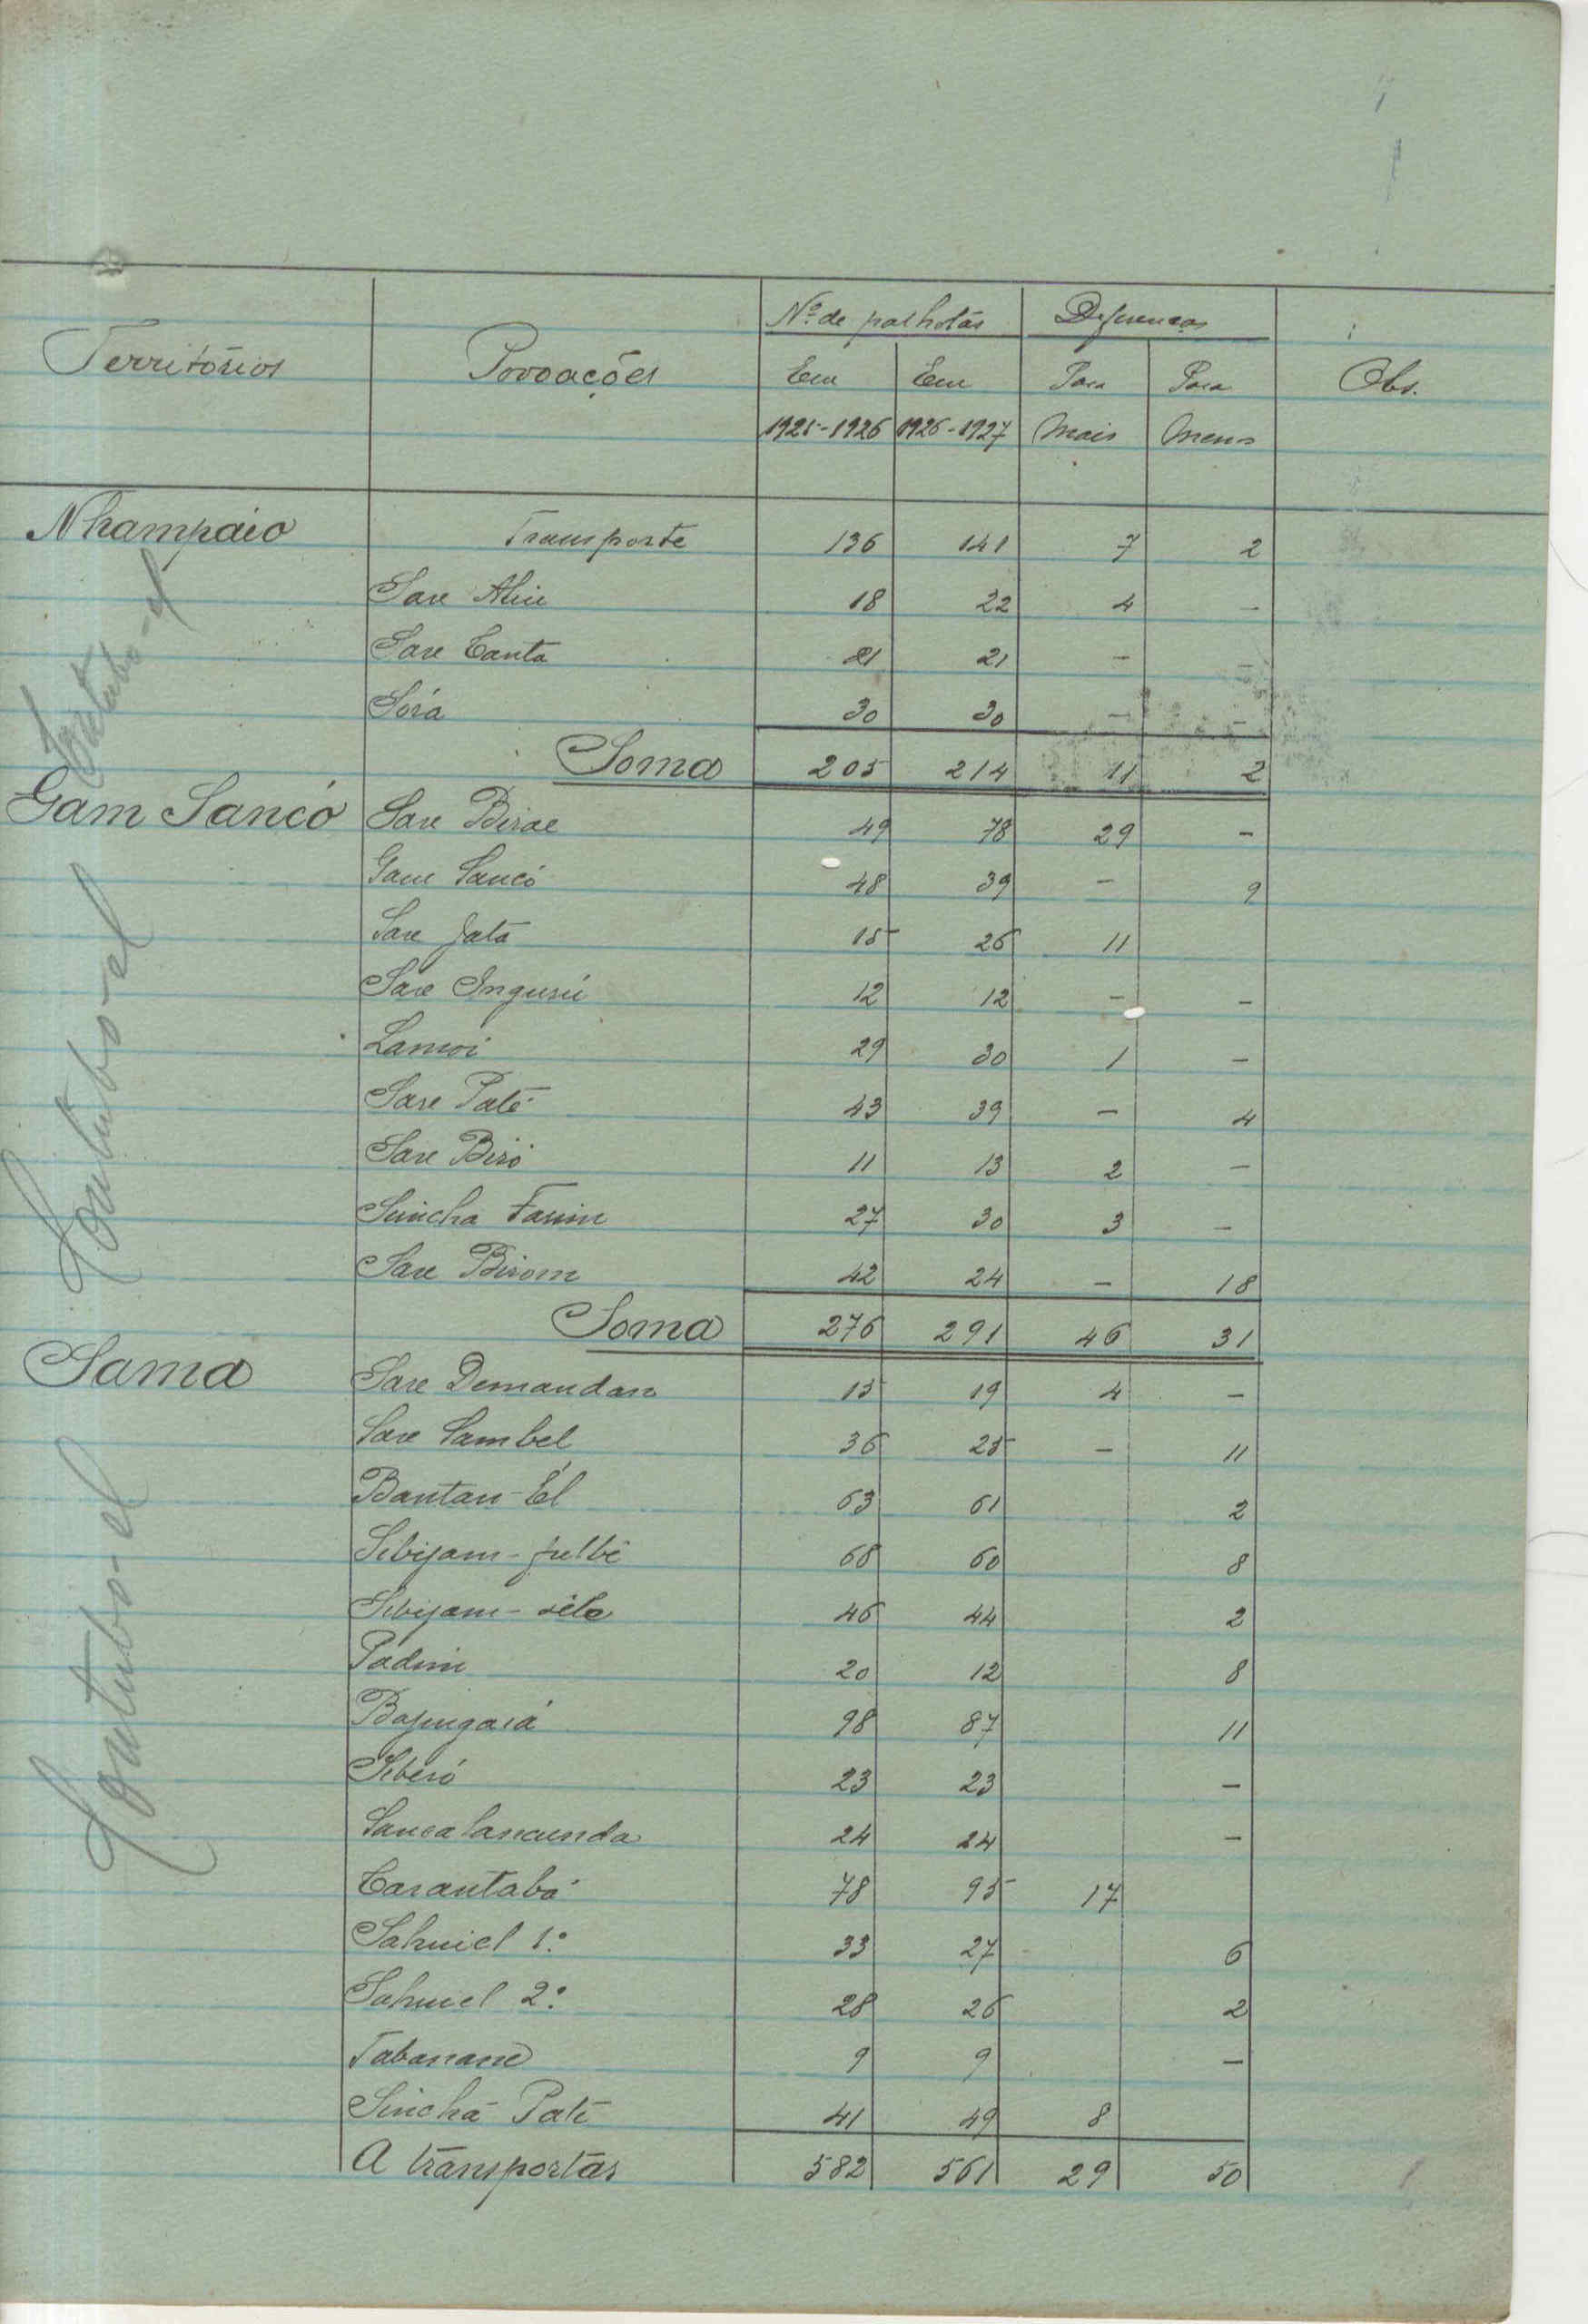 Territórios Povoações Nº de palhotas Diferenças Obs.
Em Em Para Para
1925-1926 1926-1927 Mais Menos
Nhampaio Transporte 136 141 7 2
Sare Aliu 18 22 4 -
Sare Canta 21 21 - -
Sórá 30 30 - -
Soma 205 214 11 2
Gam Sancó Sare Birae 49 78 29 -
Gam Sancó 48 39 - 9
Sare Jata 15 26 11
Sare Ingurú 12 12 - -
Lamoi 29 30 1 -
Sare Paté 43 39 - 4
Sare Biró 11 13 2 -
Sincha Farim 27 30 3 -
Sare Birom 42 24 - 18
Soma 276 291 46 31
Sama Sare Demandan 15 19 4 -
Sare Sambel 36 25 - 11
Bantan-Él 63 61 2
Sibijam-fulbé 68 60 8
Sibijam- 46 44 2
Padim 20 12 8
Bajingará 98 87 11
Siberó 23 23 -
Sancalancunda 24 24 -
Carantabá 78 95 17
Sahuiel 1º 33 27 6
Sahuiel 2º 28 26 2
Tabanané 9 9 -
Sincha Paté 41 49 8
A transportar 582 561 29 50
Contubo-el
Contubo-el
Contubo-el